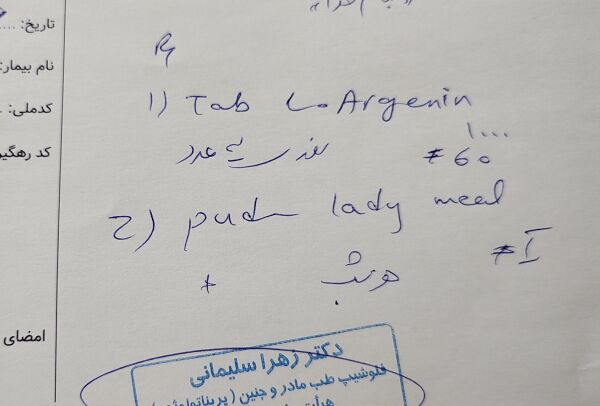 تاریخ: ....
نام بیمار:
کدملی:
کد رهگیر
R
1) Tab L-Argenin
1000
عدد
# 60
2) pudr lady meal
# I
هر شب
امضای
دکتر زهرا سلیمانی
فلوشیپ طب مادر و جنین (پریناتولوژی)